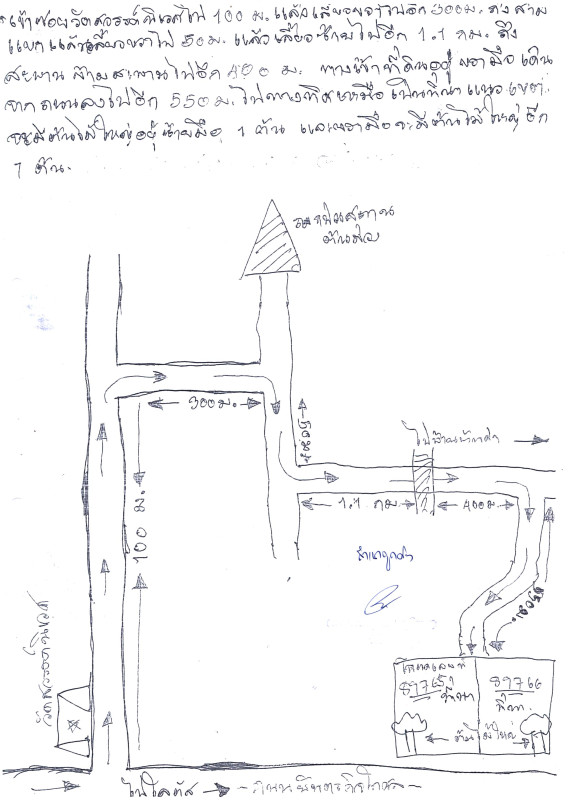 เข้าซอยวัดสวรรค์นิเวศไป 100 ม. แล้วเลี้ยวขวาไปอีก 300 ม. ถึงสาม
แยกแล้วเลี้ยวขวาไป 50 ม. แล้วเลี้ยวซ้ายไปอีก 1.1 กม. ถึง
สะพาน ข้ามสะพานไปอีก 400 ม. ทางเข้าที่ดินอยู่ขวามือ เดิน
จากถนนลงไปอีก 550 ม. ไปทางทิศเหนือ เป็นที่นา แนวเขต
จะมีต้นไม้ใหญ่อยู่ซ้ายมือ 1 ต้น และขวามือจะมีต้นไม้ใหญ่อีก
1 ต้น.
สะพาน
300 ม.
50 ม.
ไปบ้าน
1.1 กม
400 ม
100 ม.
550 ม.
วัดสวรรค์นิเวศ
โฉนดเลขที่
89765
ที่นา
89766
ที่นา
ต้นไม้ใหญ่
ไปโลตัส
ถนน